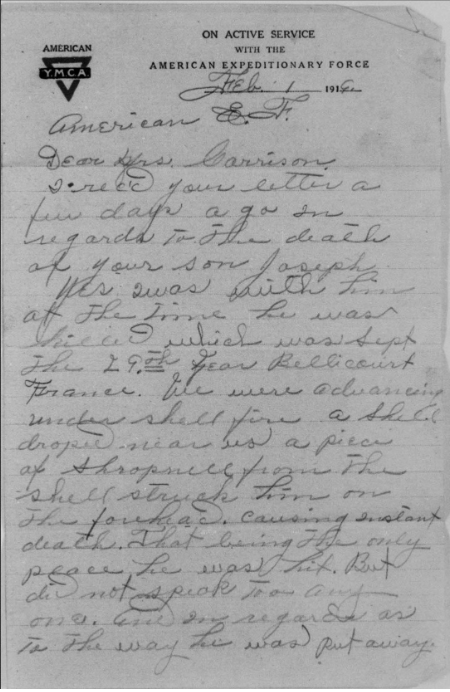 ON ACTIVE SERVICE
WITH THE
AMERICAN EXPEDITIONARY FORCE
AMERICAN
Y.M.C.A
Feb. 1 191
American E.F.
Dear Mrs. Garrison
I rec'd your letter a
few days a go in
regards to the death
of your son Joseph.
Yes I was with him
at the time he was
killed which was Sept
the 29th Near Bellicourt
France. We were advancing
under shell fire a shell
droped near us a piece
of Shropnell from the
shell struck him on
the forehead. causing instant
death. That being the only
peace he was hit. But
did not speak too any
one. And in regards as
to the way he was put away.